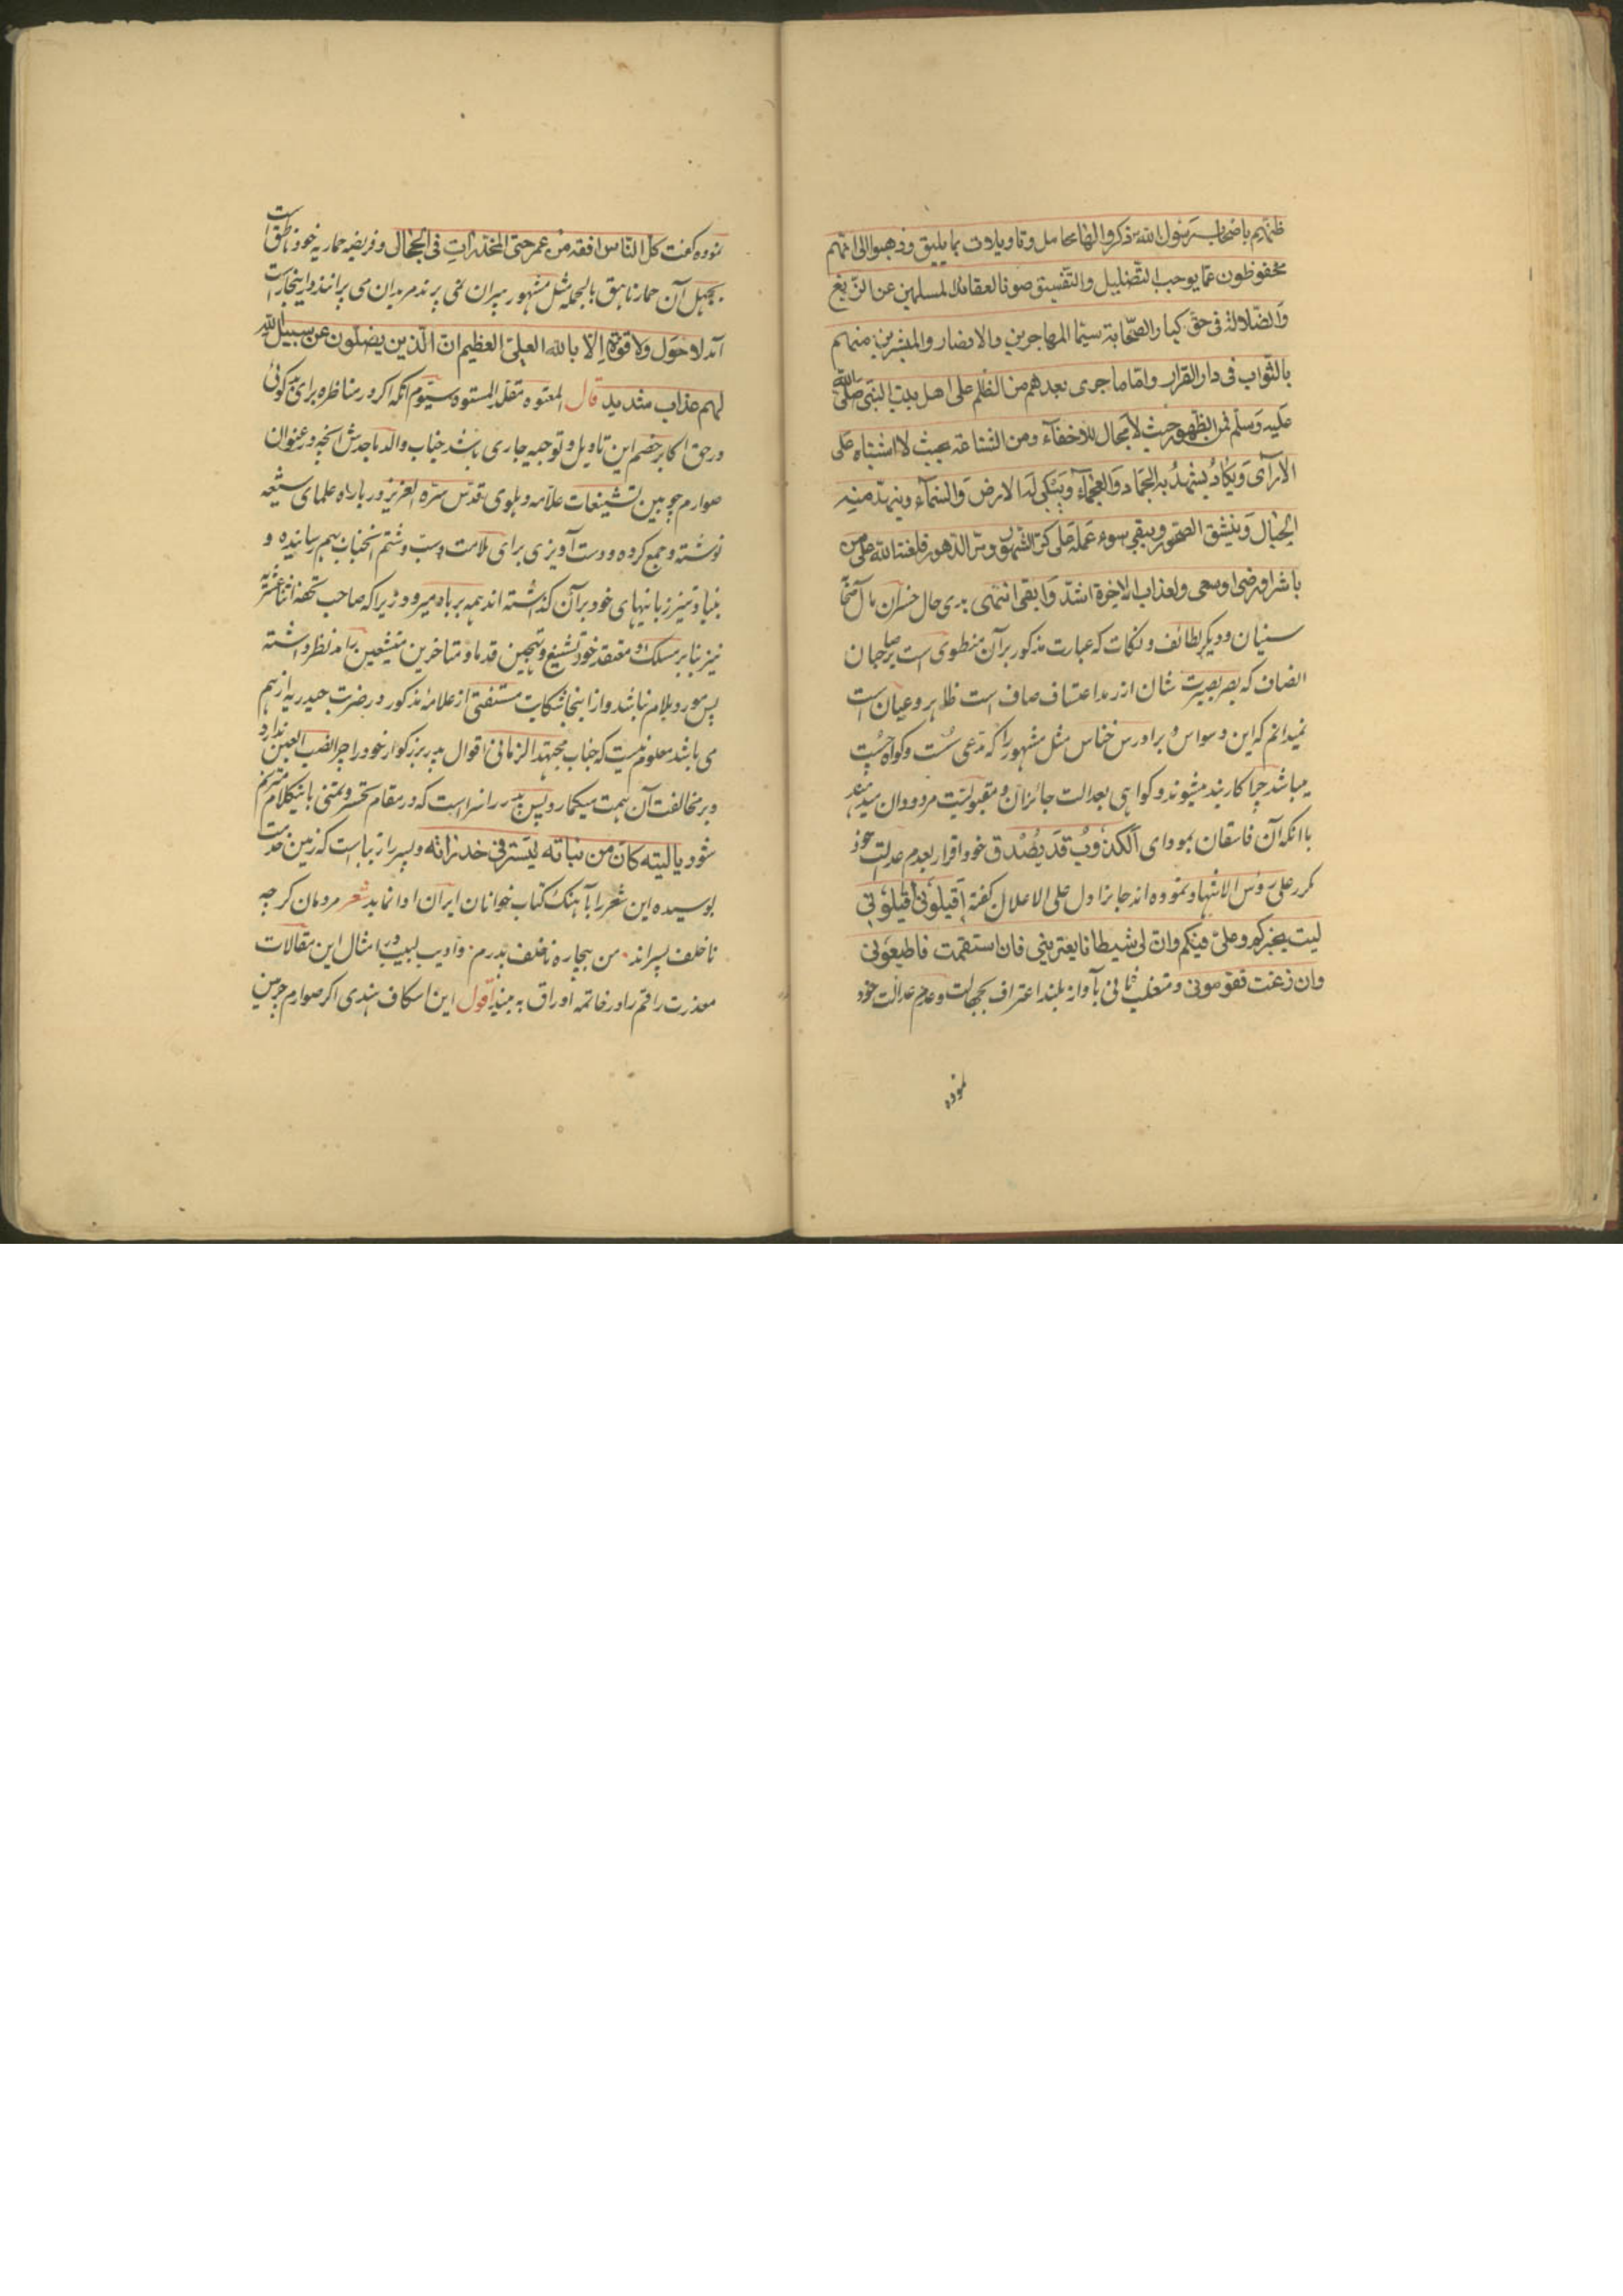 ظنهم باصحاب رسول الله ذكروا لها محامل وتاويلات بما يليق وذهبوا الى انهم
محفوظون عما يوجب التضليل والتفسيق صونا لعقائد المسلمين عن الزيغ
والضلالة فى حق كبار الصحابة سيما المهاجرين والانصار والمبشرين منهم
بالثواب فى دار القرار واما ما جرى بعدهم من الظلم على اهل بيت النبى صلى الله
عليه وسلم فمن الظهور حيث لا مجال للاخفاء ومن الشناعة بحيث لا اشتباه على
الآراى ويكاد يشهد به الجماد والعجماء ويبكى له الارض والسماء وينهد منه
الجبال وينشق الصخور ويبقى سوء عمله على كر الشهور ومر الدهور فلعنة الله على من
باشر او رضى او سعى ولعذاب الاخرة اشد وابقى انتهى پرى حال خسران مآل
سنيان و ديگر لطائف و نكات كه عبارت مذكور بر آن منطوى است بر صاحبان
انصاف كه بصر بصيرت شان از رمد اعتساف صاف است ظاهر و عيان است
نميدانم كه اين وسواس و برادرس خناس مثل مشهور را كه مدعى سست و گواه چست
ميباشد چرا كاربند ميشوند و گواهى بعدالت جائران و مقبوليت مردودان ميدهند
با آنكه آن فاسقان بمودای الكذوب قد يصدق خود اقرار بعدم عدالت خود
كرر على رؤس الاشهاد نموده اند جائر اول على الاعلان گفته اقيلونى اقيلونى
لست بخيركم وعلى فيكم وان لى شيطانا يعترينى فان استقمت فاطيعونى
وان زغت فقومونى و متغلب ثانى بآواز بلند اعتراف بجهالت و عدم عدالت خود
نموده
نموده گفت كل الناس افقه من عمر حتى المخدرات فى الحجال و فريضه حماريه خود ناطق است
بجهل آن حمار ناهق بالجمله مثل مشهور پيران نمى پرند مريدان مى پرانند در اينجا راست
آمد لا حول ولا قوة الا بالله العلى العظيم ان الذين يضلون عن سبيل الله
لهم عذاب شديد قال المعتوه مقلد المستوه سيوم آنكه اگر در مناظره براى بدگوئى
در حق اكابر خصم اين تاويل و توجيه جارى باشد جناب والد ماجدش آنچه در عنوان
صوارم چوبين تشنيعات علامه دهلوى قدس سره العزيز در باره علماى شيعه
نوشته و جمع كرده و دست آويزى براى ملامت و سب و شتم آنجناب بهم رسانيده و
بنياد تيز زبانيهاى خود بر آن گذاشته اند همه برباد ميرود زيرا كه صاحب تحفه اثنا عشريه
نيز بنابر مسلك و معتقد خود تشنيع و تهجين قدما و متاخرين متشيعين را مد نظر داشته
پس مورد ملام نباشد و از اينجا شكايت مستفتى از علامه مذكور در ضربت حيدريه از هم
مى پاشد معلوم نيست كه جناب مجتهد الزمانى اقوال پدر بزرگوار خود را چرا نصب العين ندارد
و بر مخالفت آن همت ميگمارد پس پدر را سزاست كه در مقام تحسر و تمنى باينكلام مترنم
شود يا ليته كان من بناته ليستر فى خدراته و پسر را زيباست كه زمين خدمت
بوسيده اين شعر را بآهنگ كتاب خوانان ايران ادا نمايد شعر مردمان گرچه
ناخلف پسراند من بيچاره ناخلف پدرم و اديب لبيب در امثال اين مقالات
معذرت راقم را در خاتمه اوراق به بيند اقول اين اسكاف هندى اگر صوارم چرمين